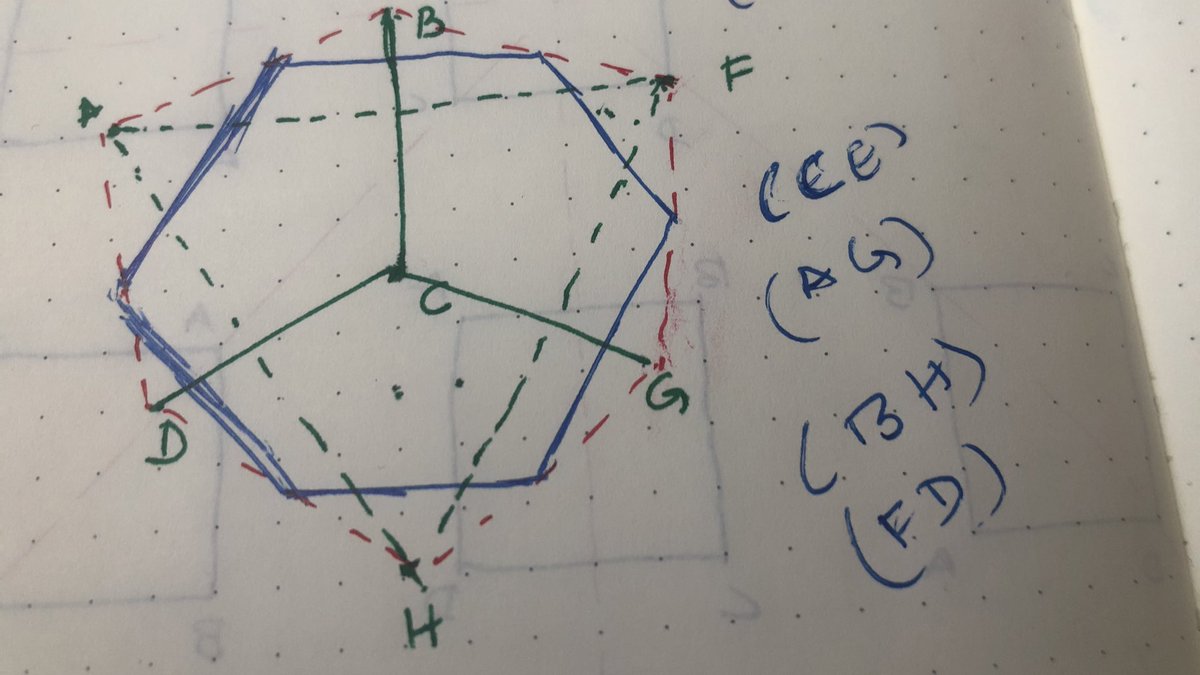 B
A
F
C
D
G
H
(CE)
(AG)
(BH)
(FD)